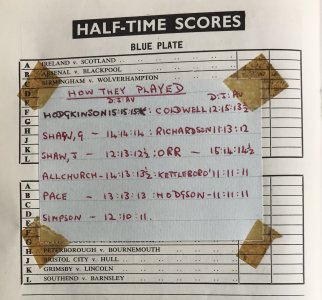 HALF-TIME SCORES
BLUE PLATE
A IRELAND v. SCOTLAND
B ARSENAL v. BLACKPOOL
BIRMINGHAM v. WOLVERHAMPTON
HOW THEY PLAYED
D.S: AV D.S: AV
HODGKINSON 15:15:15 : COLDWELL 12:15:13½
SHAW, G - 14:14:14 : RICHARDSON 11:13:12
SHAW, J - 12:13:12½ : ORR - 15:14:14½
ALLCHURCH - 14:13:13½ : KETTLEBORO' 11:11:11
PACE - 13:13:13 : HODGSON - 11:11:11
SIMPSON - 12:10:11.
E
F
G
H
J
K
L
A
B
C
D
E
G
H PETERBOROUGH v. BOURNEMOUTH
J BRISTOL CITY v. HULL
K GRIMSBY v. LINCOLN
L SOUTHEND v. BARNSLEY